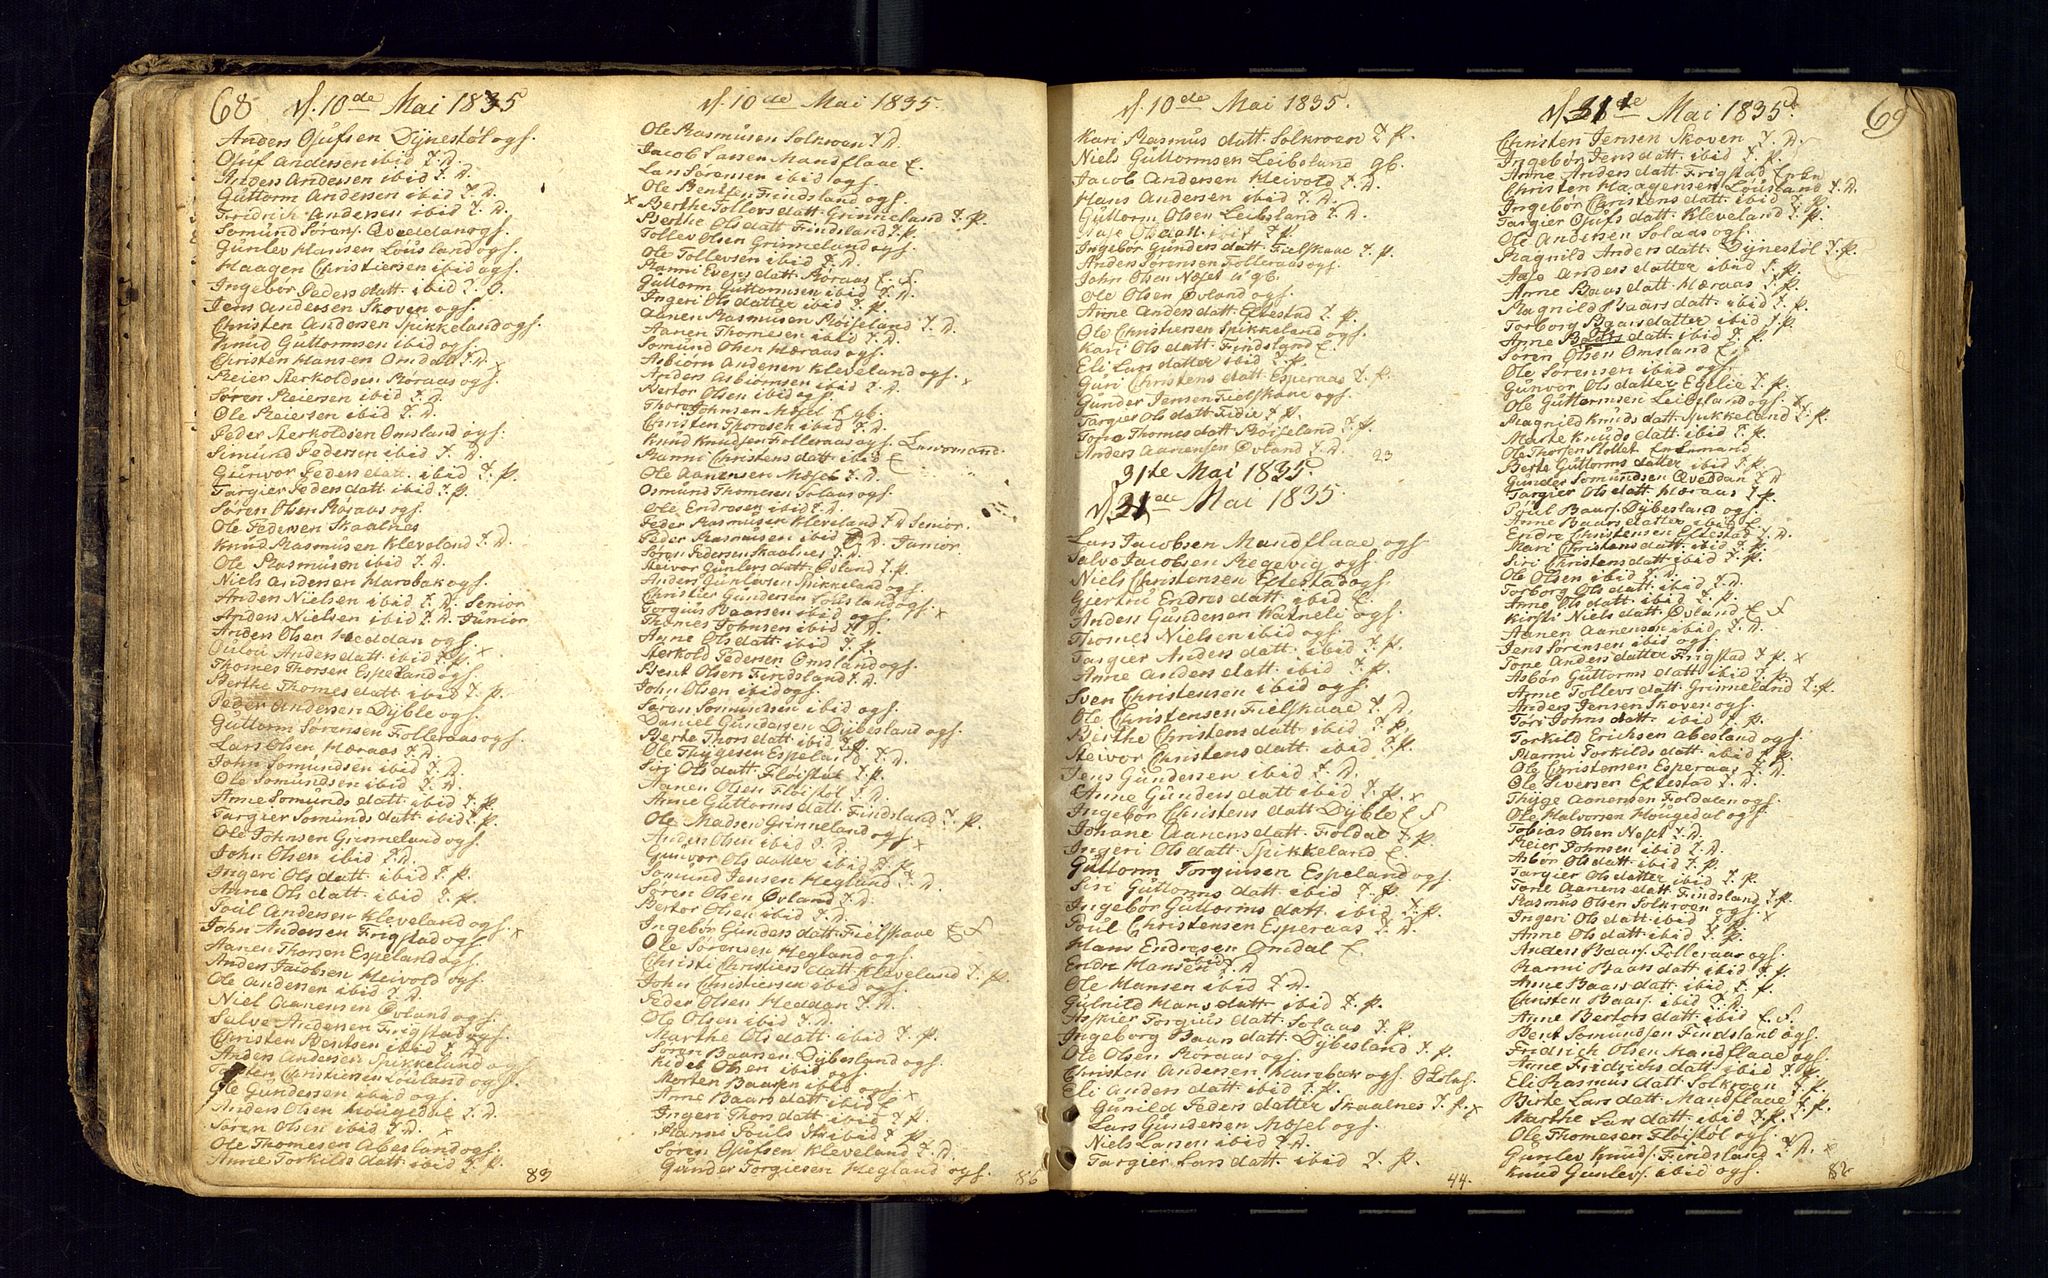 68 d. 10de Mai 1835
Anders Ojufsen Dÿnestøl ogf.
Ojuf Andersen ibid T. D.
Anders Andersen ibid T. D.
Guttorm Andersen ibid T. D.
Fridrich Andersen ibid T. D.
Somund Sørens. Qveddan ogf.
Gunlev Hansen Lousland ogf.
Haagen Christiersen ibid ogf.
Ingebor Peders datt. ibid
Jens Andersen Skoven ogf.
Christen Andersen Spikkeland ogf.
Knud Guttormsen ibid ogf.
Christen Hansen Omdal T. D. x
Reier Sterkoldsen Røraas ogf.
Søren Reiersen ibid T. D.
Ole Reiersen ibid T. D.
Peder Sterkoldsen Omsland ogf.
Simund Pedersen ibid T. D.
Gunvor Peders datt. ibid T. P.
Targier Peders datt. ibid T. P.
Søren Olsen Røraas ogf.
Ole Pedersen Skaalnes
Knud Rasmusen Kleveland T. D.
Ole Rasmusen ibid T. D.
Niels Andersen Harebak ogf.
Anders Nielsen ibid T. D. Senior
Anders Nielsen ibid T. D. Junior
Anders Olsen Heddan ogf.
Anders datt. ibid T. P. x
Thomes Thorsen Espeland ogf.
Berthe Thomes datt. ibid T. P.
Peder Andersen Dÿble ogf.
Guttorm Sørensen Folleraas ogf.
Lars Olsen Hæraas T. D.
John Somundsen ibid T. D.
Ole Somundsen ibid T. D.
Anne Somunds datt. ibid T. P.
Targier Somunds datt. ibid T. P.
Ole Johnsen Grimeland ogf.
John Olsen ibid T. D.
Ingeri Ols datt. ibid T. P.
Anne Ols datt. ibid T. P.
Poul Andersen Kleveland ogf.
John Andersen Frigstad ogf. x
Aanen Thorsen Espeland ogf.
Anders Jacobsen Heivold ogf.
Ole Andersen ibid T. D.
Niel Aanensen Øvland ogf.
Salve Andersen Frigstad ogf.
Christen Bentsen ibid T. D.
Anders Andersen Spikkeland ogf.
Christiersen Lousland ogf.
Ole Gundersen ibid ogf.
Anders Olsen Hougedal T. D.
Søren Olsen ibid T. D. x
Ole Thomesen Abesland ogf.
Anne Torkilds datt. ibid T. P.
83
d. 10de Mai 1835.
Ole Rasmusen Solkroen T. D.
Jacob Larsen Mandflaae E.
Lars Sørensen ibid ogf.
Ole Bentsen Findsland ogf.
x Berthe Tollevs datt. Grimeland T. P.
Berthe Ols datt. Findsland T. P.
Tollev Olsen Grimeland ogf.
Ole Tollevsen ibid T. D.
Ranni Evens datt. Røraas E. f.
Guttorm Guttormsen ibid T. D.
Ingeri Ols datter ibid T. P.
Aanen Rasmusen Røiseland T. D.
Aanen Thomesen ibid T. D.
Somund Olsen Hæraas ogf.
Asbiørn Andersen Kleveland ogf. x
Anders Asbiørnsen ibid T. D.
Bertor Olsen ibid ogf.
Thore Johnsen Møsel E. gb.
Christen Thoresen ibid T. D.
Knud Knudsen Folleraas ogf. Lensmand.
Ranni Christens datt. ibid E.
Ole Aanensen Møsel T. D.
Osmund Thomesen Solaas ogf.
Ole Endresen ibid T. D.
Peder Rasmusen Kleveland T. D. Senior.
Peder Rasmusen ibid T. D. Junior
Søren Pedersen Skaalnes T. D.
Steivor Gunlevs datt. Øvland T. P.
Anders Gunlevsen Spikkeland ogf.
Christier Gundersen Lousland ogf. x
Torgius Baarsen ibid ogf.
Thomes Johnsen ibid T. D.
Anne Ols datt. ibid T. P.
Sterkold Pedersen Omsland ogf.
Bent Olsen Findsland T. D.
John Olsen ibid ogf.
Søren Somundsen ibid ogf.
Daniel Gundersen Dÿbesland ogf.
Berthe Thors datt. ibid T. P.
Ole Thÿgesen Espeland T. D.
Siri Ols datt. Fløistøl T. P.
Aanen Olsen Fløistøl T. D.
Anne Guttorms datt. Findsland T. P.
Ole Madsen Grimeland ogf.
Anders Olsen ibid T. D. x
Gunvor Ols datter ibid T. P.
Somund Jensen Hegland T. D.
Søren Olsen Øvland T. D.
Bertor Olsen ibid T. D.
Ingebor Gunders datt. Fielskaae E. f.
Ole Sørensen Hegland ogf.
Christi Christiers datt. Kleveland T. P.
John Christiersen ibid ogf.
Peder Olsen Heddan T. D.
Ole Olsen ibid T. D.
Marthe Ols datt. ibid T. P.
Søren Baarsen Dÿbesland ogf.
Olsen ibid ogf.
Morten Baarsen ibid ogf.
Anne Baars datt. ibid E.
Ingeri Thors datt. ibid T. P.
Ranni Pouls datt. ibid T. P.
Søren Ojufsen Kleveland T. D.
Gunder Torgiesen Hegland ogf.
86
d. 10de Mai 1835.
Kari Rasmus datt. Solkroen T. P.
Niels Guttormsen Leibsland gb.
Jacob Andersen Heivold T. D.
Hans Andersen ibid T. D.
Guttorm Olsen Leibsland T. D.
Aase Ols datt. ibid T. P.
Ingebor Gunders datt. Fielskaae T. P.
Anders Sørensen Folleraas ogf.
John Olsen Møsel gb.
Ole Olsen Øvland ogf.
Anne Anders datt. Eftestad T. P.
Ole Christiersen Spikkeland ogf.
Kari Ols datt. Findsland E.
Eli Lars datter ibid T. P.
Guri Christens datt. Esperaas T. P.
Gunder Jensen Fielskaae ogf.
Targier Ols datt. Fidie T. P.
Tone Thomes datt. Røiseland T. P.
Anders Aanensen Øvland T. D. 23
31te Mai 1835.
d. 31de Mai 1835
Lars Jacobsen Mandflaae ogf.
Salve Jacobsen Regevig ogf.
Niels Christensen Eftestad ogf.
Giertru Endres datt. ibid E.
Anders Gundersen Vatneli ogf.
Thomes Nielsen ibid ogf.
Targier Anders datt. ibid T. P.
Anne Anders datt. ibid T. P.
Sven Christensen ibid ogf.
Ole Christensen Fielskaae T. D.
Birthe Christens datt. ibid T. P.
Steivor Christens datt. ibid T. P.
Jens Gundersen ibid T. D.
Anne Gunders datt. ibid T. P. x
Ingebor Christens datt. Dÿble E. f.
Johane Aanens datt. Foldal T. P.
Ingeri Ols datt. Spikkeland E.
Guttorm Torgiusen Espeland ogf.
Siri Guttorms datt. ibid T. P.
Ingebor Guttorms datt. ibid T. P.
Poul Christensen Esperaas T. D.
Hans Endresen Omdal E.
Endre Hansen ibid T. D
Ole Hansen ibid T. D.
Gunild Hans datt. ibid T. P.
Aspier Torgius datt. Solaas T. P.
Ingeborg Baars datt. Dÿbesland T. P.
Ole Olsen Røraas ogf.
Christen Andersen Harebak ogf.
Eli Anders datt. ibid T. P.
Gunild Peders datter Skaalnes T. P. x
Lars Gundersen Møsel ogf.
Niels Larsen ibid T. D.
Targier Lars datt. ibid T. P.
44.
d. 31te Mai 1835. 69
Christen Jensen Skoven T. D.
Ingebor Jens datt. ibid T. P.
Anne Anders datt. Frigstad Enken
Christen Haagensen Lousland T. D.
Ingebor Christens datt. ibid T. P.
Targier Ojufs datt. Kleveland T. P.
Ole Andersen Solaas ogf.
Ragnild Anders datt. Dÿnestøl T. P.
Aase Anders datter ibid T. P.
Anne Baars datt. Hæraas T. P.
Ragnild Baars datt. ibid T. P.
Torborg Baars datter ibid T. P.
Anne Ols datt. ibid T. P.
Søren Olsen Omsland E.
Ole Sørensen ibid ogf.
Gunvor Ols datter Egelie T. P.
Ole Guttormsen Leibsland ogf. x
Magnild Knuds datt. Spikkeland T. P.
Marte Knuds datt. ibid T. P.
Ole Thorsen Stollet
Berte Guttorms datter ibid T. P.
Gunder Somundsen Qveddan T. D
Targier Ols datt. Hæraas T. P.
Poul Baars. Dÿbesland ogf.
Anne Baars datter ibid E.
Endre Christensen Eftestad T. D.
Mari Christens datt. ibid T. P.
Siri Christens datt. ibid T. P.
Ole Olsen ibid T. D.
Torborg Ols datt. ibid T. P.
Anne Ols datt. ibid T. P.
Kirsti Niels datt. Øvland E. f.
Aanen Aanensen ibid T. D.
Jens Sørensen ibid ogf.
Tone Anders datter Frigstad T. P. x
Asbor Guttorms datt. ibid T. P.
Anne Tollevs datt. Grimeland T. P.
Anders Jensen Skoven ogf.
Tori Johns datt. ibid T. P.
Torkild Erichsen Abesland ogf.
Ranni Torkilds datt. ibid T. P.
Ole Christensen Esperaas T. D.
Ole Siversen Eftestad T. D.
Thÿge Aanensen Foldalen ogf.
Ole Halvorsen Hougedal ogf.
Tobias Olsen Møsel T. D.
Reier Johnsen ibid T. D.
Asbor Ols datt. ibid T. P.
Targier Ols datter ibid T. P.
Tone Aanens datt. Findsland T. P.
Rasmus Olsen Solkroen ogf.
Ingeri Ols datt. ibid T. P. x
Anne Ols datt. ibid T. P.
Anders Baars. Folleraas ogf.
Ranni Baars datt. ibid T. P.
Anne Baars datt. ibid T. P.
Christen Baars. ibid T. D.
Anne Bertors datt. ibid E. f.
Bent Somundsen Findsland ogf.
Fridrich Olsen Mandflaae ogf.
Anne Fridrichs datt. ibid T. P.
Eli Rasmus datt. Solkroen T. P.
Birte Lars datt. Mandflaae T. P.
Marthe Lars datt. ibid T. P.
Ole Thomesen Fløistøl ogf.
Gunlev Knuds. Findsland T. D. x
Knud Gunlevs. ibid ogf. 82